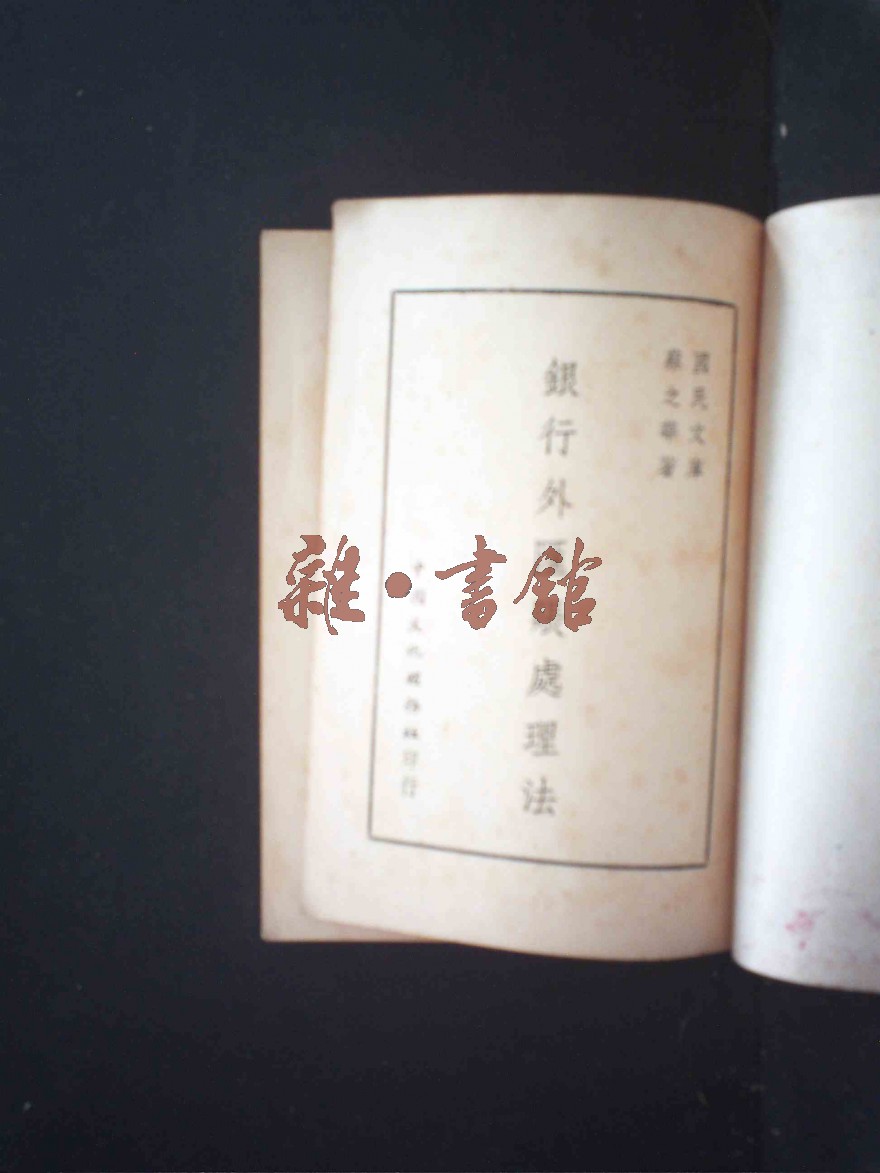 國民文庫
蘇之華著
銀行外匯處理法
中國文化服務社印行
雜•書館